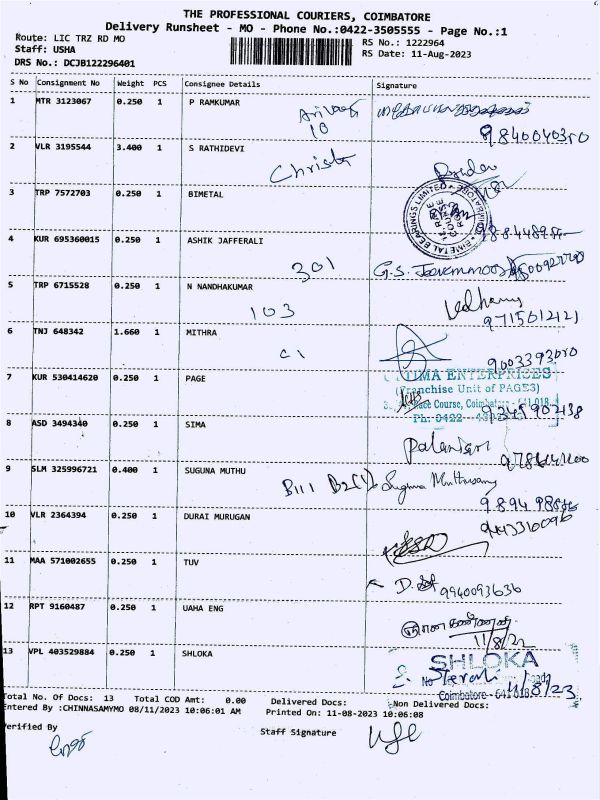 THE PROFESSIONAL COURIERS, COIMBATORE
Delivery Runsheet - MO - Phone No.:0422-3505555 - Page No.:1
Route: LIC TRZ RD MO
RS No.: 1222964
Staff: USHA
RS Date: 11-Aug-2023
DRS No.: DCJB122296401
S No Consignment No Weight PCS Consignee Details Signature
1 MTR 3123067 0.250 1 P RAMKUMAR
10
9840040350
2 VLR 3195544 3.400 1 S RATHIDEVI
3 TRP 7572703 0.250 1 BIMETAL
BIMETAL BEARINGS LIMITED
COIMBATORE
4 KUR 695360015 0.250 1 ASHIK JAFFERALI
301 G.S.
5 TRP 6715528 0.250 1 N NANDHAKUMAR
103
9715012121
6 TNJ 648342 1.660 1 MITHRA
C1
9003393050
7 KUR 530414620 0.250 1 PAGE
TIMA ENTERPRISES
(Franchise Unit of PAGE3)
Race Course, Coimbatore - 641 018.
Ph: 0422
8 ASD 3494340 0.250 1 SIMA
9 SLM 325996721 0.400 1 SUGUNA MUTHU
B111 Suguna Muthusamy
10 VLR 2364394 0.250 1 DURAI MURUGAN
9443316096
11 MAA 571002655 0.250 1 TUV
9940093636
12 RPT 9160487 0.250 1 UAHA ENG
11/8/23
13 VPL 403529884 0.250 1 SHLOKA
SHLOKA
Coimbatore - 641 018
11/8/23
Total No. Of Docs: 13 Total COD Amt: 0.00 Delivered Docs: Non Delivered Docs:
Entered By :CHINNASAMYMO 08/11/2023 10:06:01 AM Printed On: 11-08-2023 10:06:08
Verified By
Staff Signature